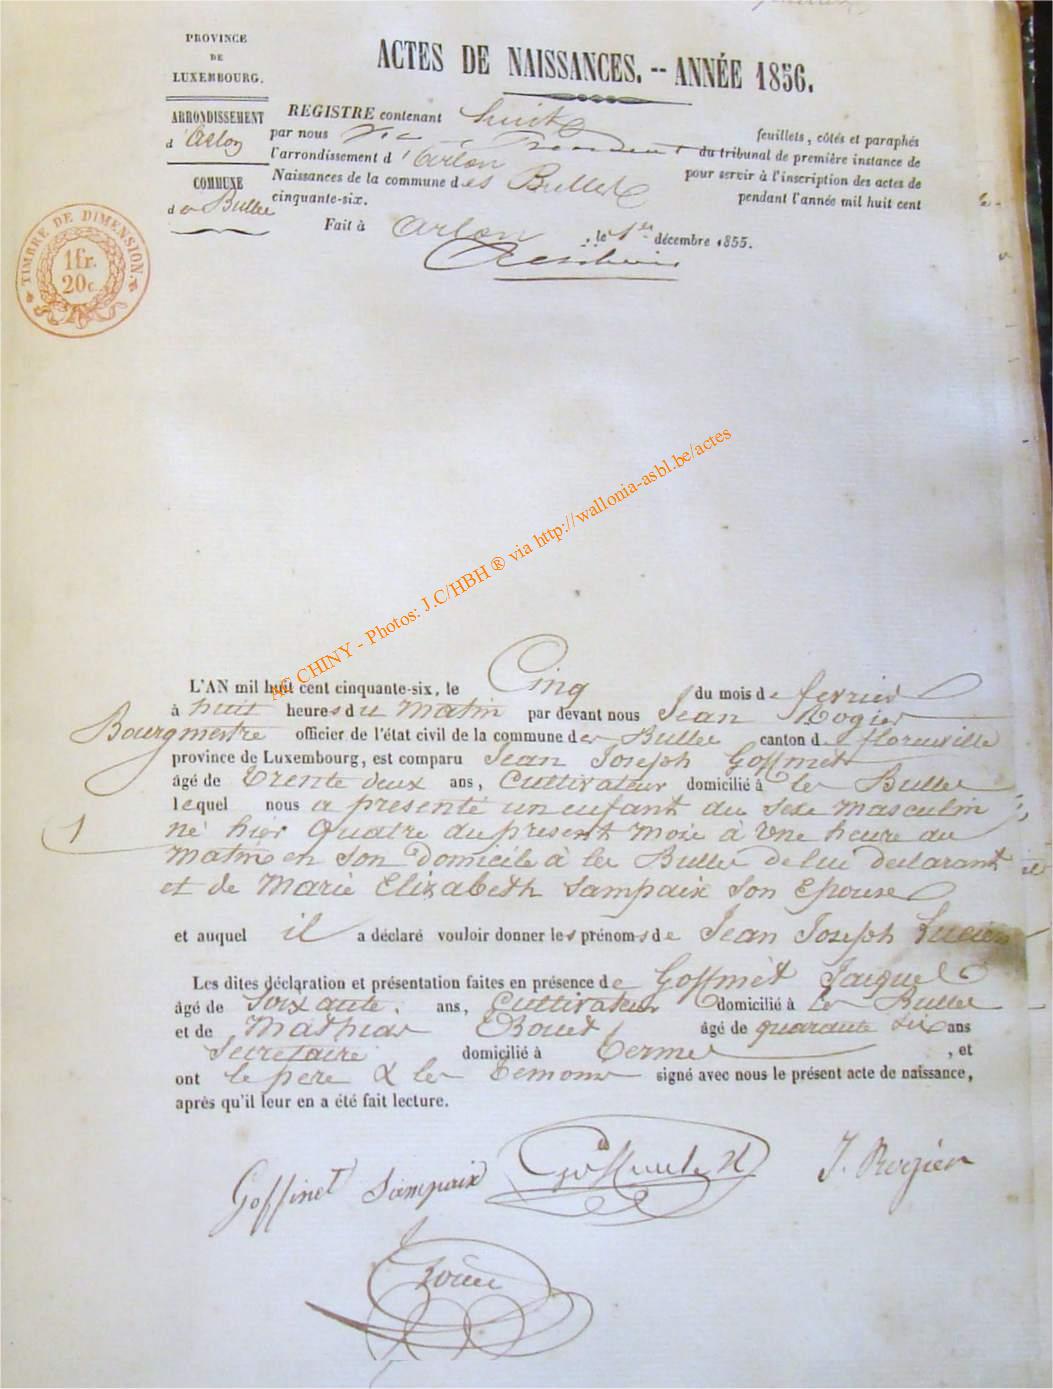 PROVINCE
DE
LUXEMBOURG.
ARRONDISSEMENT
d'Arlon
COMMUNE
de Bulles
TIMBRE DE DIMENSION.
1 fr.
20 c.
ACTES DE NAISSANCES. -- ANNÉE 1856.
REGISTRE contenant huit feuillets, côtés et paraphés
par nous Président du tribunal de première instance de
l'arrondissement d'Arlon pour servir à l'inscription des actes de
Naissances de la commune des Bulles pendant l'année mil huit cent
cinquante-six.
Fait à Arlon, le 1er décembre 1855.
AC CHINY - Photos: J.C/HBH ® via http://wallonia-asbl.be/actes
L'AN mil huit cent cinquante-six, le Cinq du mois de fevrier
à huit heures du Matin par devant nous Jean Rogier
Bourgmestre officier de l'état civil de la commune des Bulles canton de florenville
province de Luxembourg, est comparu Jean Joseph Goffinet
âgé de trente deux ans, Cultivateur domicilié à les Bulles
lequel nous a présenté un enfant du sexe masculin
1
né hier Quatre du present mois à une heure du
Matin en son Domicile à les Bulles de lui declarant
et de Marie Elizabeth Sampaix son Epouse
et auquel il a déclaré vouloir donner les prénoms de Jean Joseph Lucien
Les dites déclaration et présentation faites en présence de Goffinet Jacques
âgé de Soixante. ans, Cultivateur domicilié à les Bulles
et de Mathias âgé de quarante six ans
Secretaire domicilié à Termes, et
ont le pere & les temoins signé avec nous le présent acte de naissance,
après qu'il leur en a été fait lecture.
Goffinet Sampaix J. Rogier